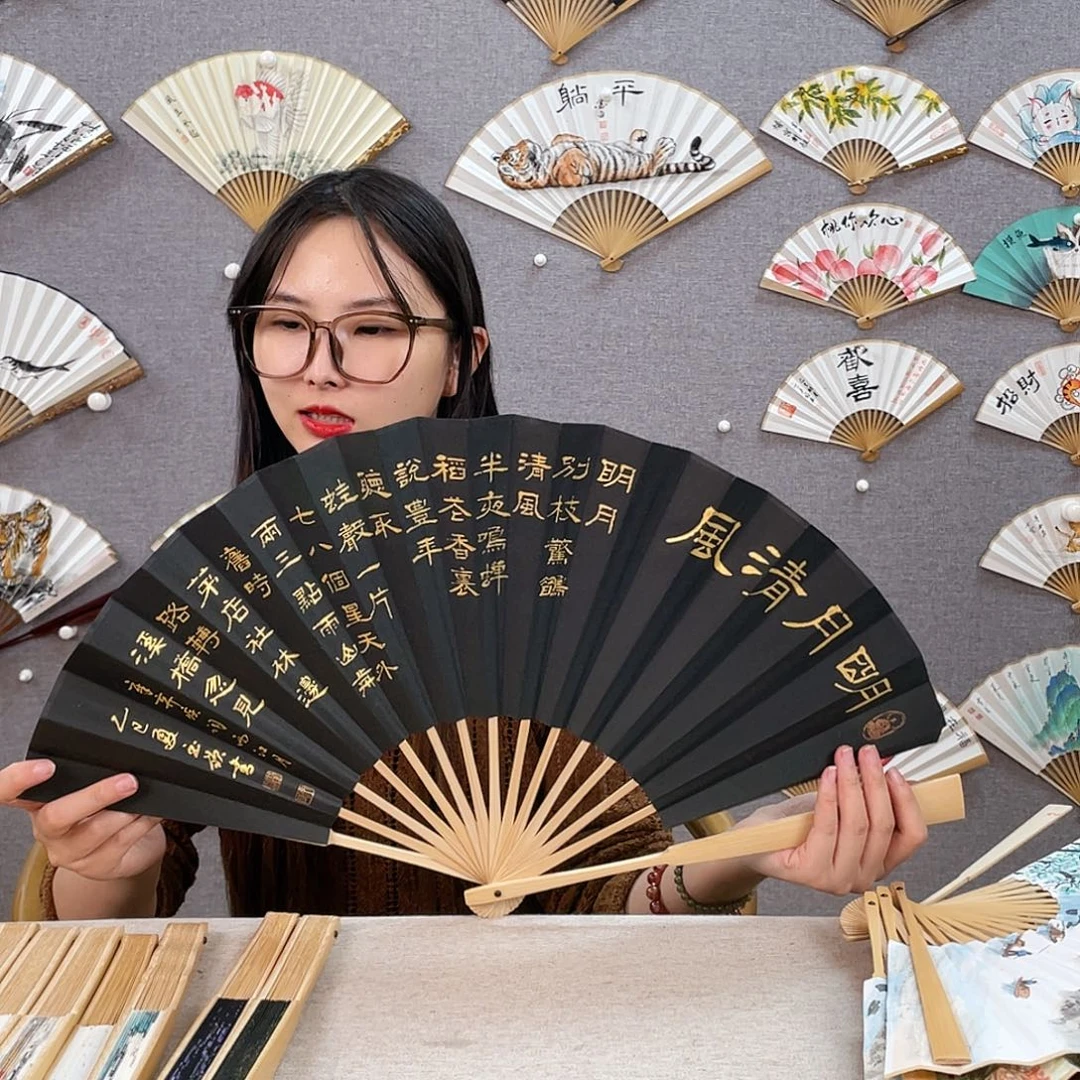 躺平
桃你欢心
摸魚
歡喜
招財
明月清風
明月
別枝驚鵲
清風
半夜鳴蟬
稻花香裏
說豐年
聽取一片
蛙聲
七八個星天外
兩三點雨山前
舊時
茅店社林邊
路轉
溪橋忽見
乙巳夏
書